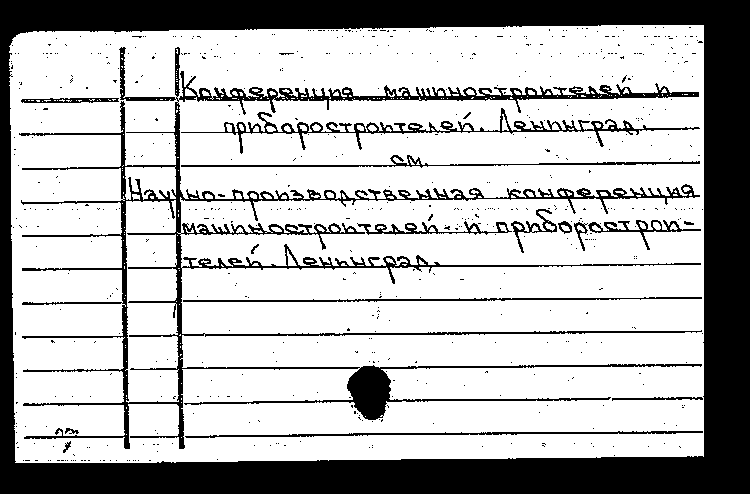 Конференция машиностроителей и
приборостроителей. Ленинград.
см.
Научно-производственная конференция
машиностроителей и приборострои-
телей. Ленинград.